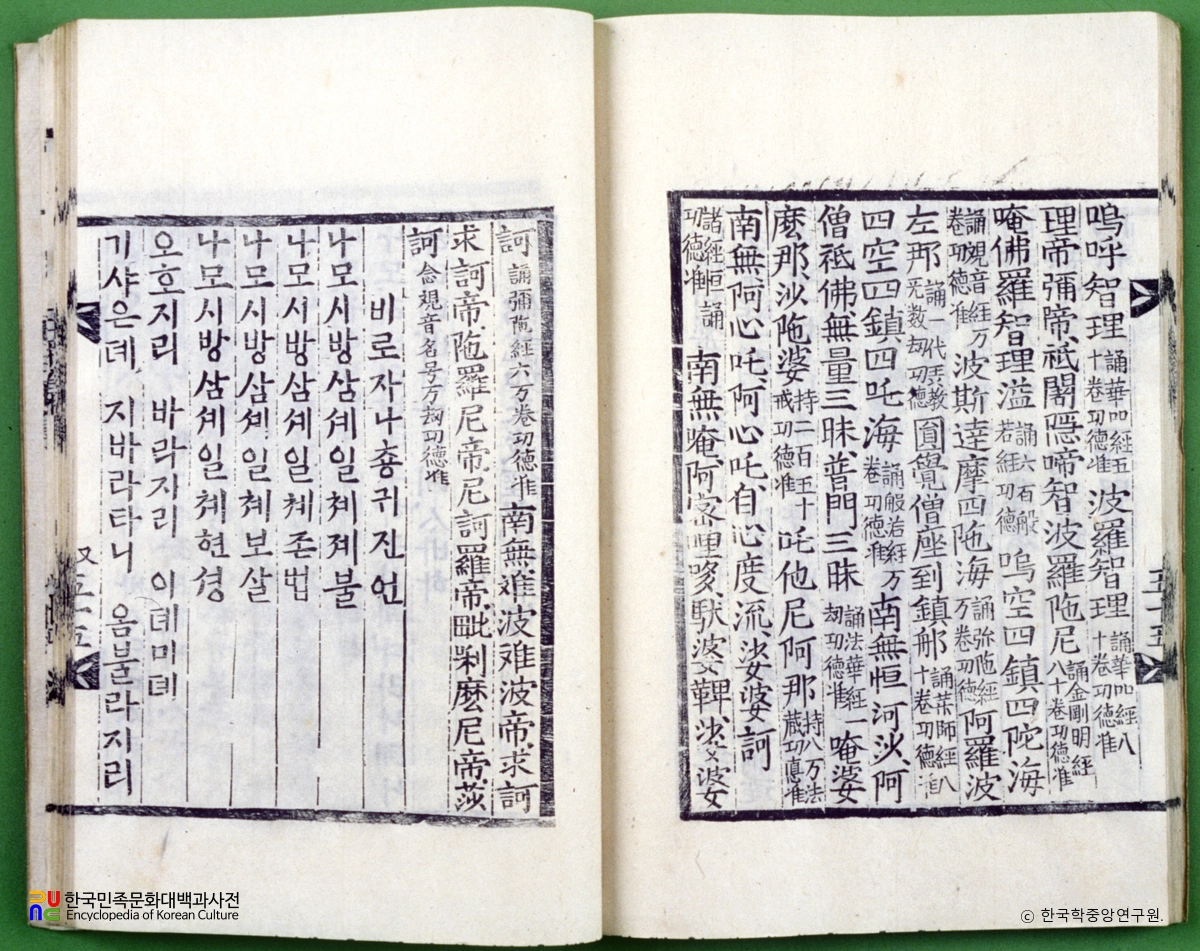 嗚呼智理 誦華吅経五十卷功德准 波羅智理 誦華吅経八十卷功德准
理帝彌帝祇閣𨼆啼智波羅陁尼 誦金剛明経八十卷功德准
唵佛羅智理溢 誦六百般若経功德 嗚空四鎮四陀海
誦観音経万卷功德准 波斯達摩四陁海 誦弥陁経万卷功德 阿羅波
左那 誦一代五教无数刼功德 圎覺僧座到鎮郍 師経八十卷功德准
四空四鎮四吒海 誦般若経万卷功德准 南無恒河沙阿
僧祇佛無量三昧普門三昧 誦法華経一刼功德准 唵婆
麽那沙陁婆 持二百五十戒功德准 吒他尼阿那 持八万法蔵功德准
南無阿心吒阿心吒自心度流娑婆訶
諸経恒誦功德准 南無唵阿哩哆馱婆婆鞞娑婆
五十五
訶 誦彌陁経六万卷功德准 南無难波难波帝求訶
求訶帝陁羅尼帝尼訶羅帝毗剎麽尼帝莎
訶 念観音名号万刼功德准
비로자나춍귀진언
나모시방삼셰일쳬졔불
나모시방삼셰일쳬존법
나모시방삼셰일쳬보살
나모시방삼셰일쳬현셩
오호지리 바라지리 이뎨미뎨
기샤은뎨 지바라타니 옴불라지리
又五十五
한국민족문화대백과사전
Encyclopedia of Korean Culture
© 한국학중앙연구원.